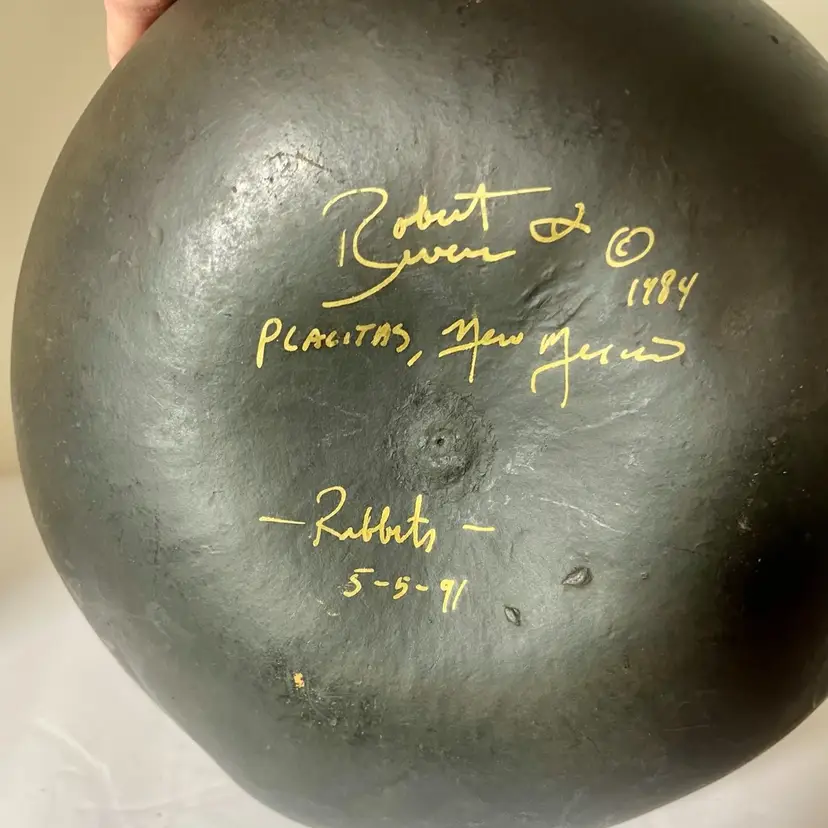 Robert
Rivera ©
1984
PLACITAS, New Mexico
— Rabbits —
5-5-91